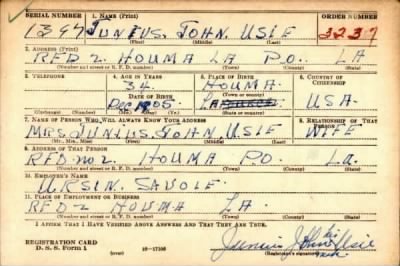 SERIAL NUMBER 1. NAME (Print) ORDER NUMBER
1397 JUNIUS. JOHN. USIE 3237
(First) (Middle) (Last)
2. ADDRESS (Print)
RFD 2 HOUMA LA P.O. LA
(Number and street or R. F. D. number) (Town) (County) (State)
3. TELEPHONE 4. AGE IN YEARS 5. PLACE OF BIRTH 6. COUNTRY OF CITIZENSHIP
34 HOUMA.
DATE OF BIRTH (Town or county)
Dec 1905 USA.
(Exchange) (Number) (Mo.) (Day) (Yr.) (State or country)
7. NAME OF PERSON WHO WILL ALWAYS KNOW YOUR ADDRESS 8. RELATIONSHIP OF THAT PERSON
MRS. JUNIUS. JOHN USIE WIFE
(Mr., Mrs., Miss) (First) (Middle) (Last)
9. ADDRESS OF THAT PERSON
RFD. NO 2. HOUMA PO. La.
(Number and street or R. F. D. number) (Town) (County) (State)
10. EMPLOYER'S NAME
URSIN. SAVOIE.
11. PLACE OF EMPLOYMENT OR BUSINESS
RFD 2 HOUMA LA.
(Number and street or R. F. D. number) (Town) (County) (State)
I AFFIRM THAT I HAVE VERIFIED ABOVE ANSWERS AND THAT THEY ARE TRUE.
REGISTRATION CARD
D. S. S. Form 1
16-17105
Junius John Usie
(Registrant's signature)